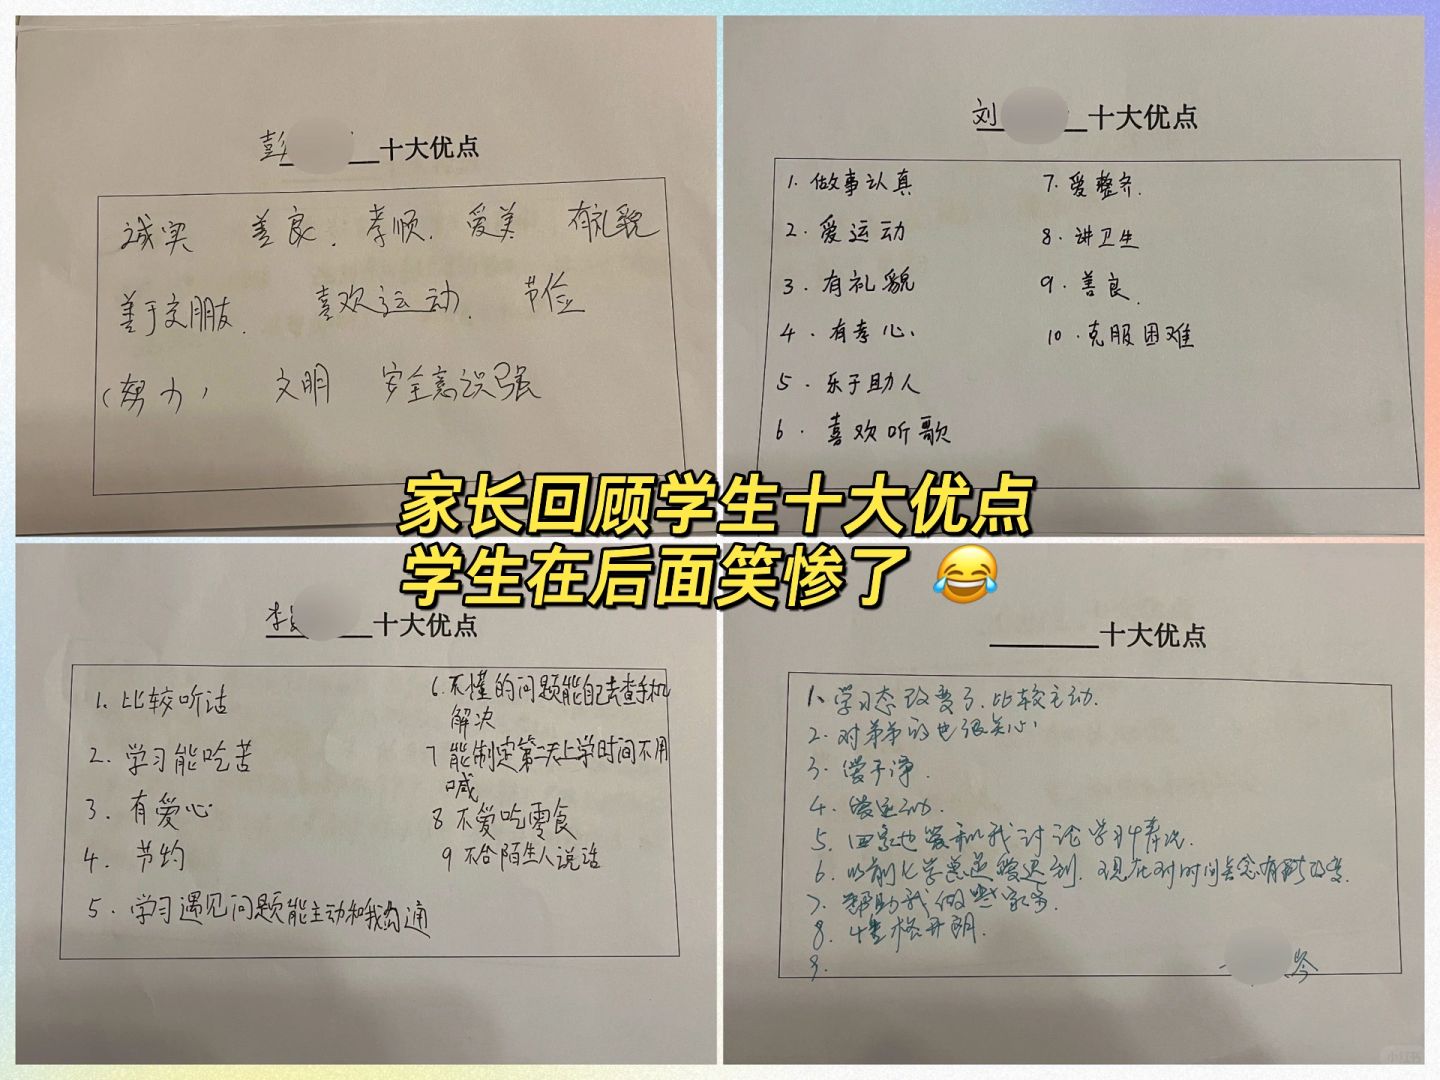 彭 十大优点
诚实 善良. 孝顺. 爱美 有礼貌
善于交朋友. 喜欢运动. 节俭
(努力) 文明 安全意识强
刘 十大优点
1. 做事认真
2. 爱运动
3. 有礼貌
4. 有孝心.
5. 乐于助人
6. 喜欢听歌
7. 爱整齐.
8. 讲卫生
9. 善良.
10. 克服困难
家长回顾学生十大优点
学生在后面笑惨了 😂
李 十大优点
1. 比较听话
2. 学习能吃苦
3. 有爱心
4. 节约
5. 学习遇见问题能主动和我沟通
6. 不懂的问题能自己去查手机
解决
7 能制定第二天上学时间不用
喊
8 不爱吃零食
9 不合陌生人说话
十大优点
1. 学习态改变了.比较主动.
2. 对弟弟的也很关心
3. 爱干净.
4. 爱运动.
5. 回家也爱和我讨论学习情况.
6. 以前上学总是爱迟到.现在对时间观念有所改变.
7. 帮助我做些家务.
8. 性格开朗.
9.
岑
小红书